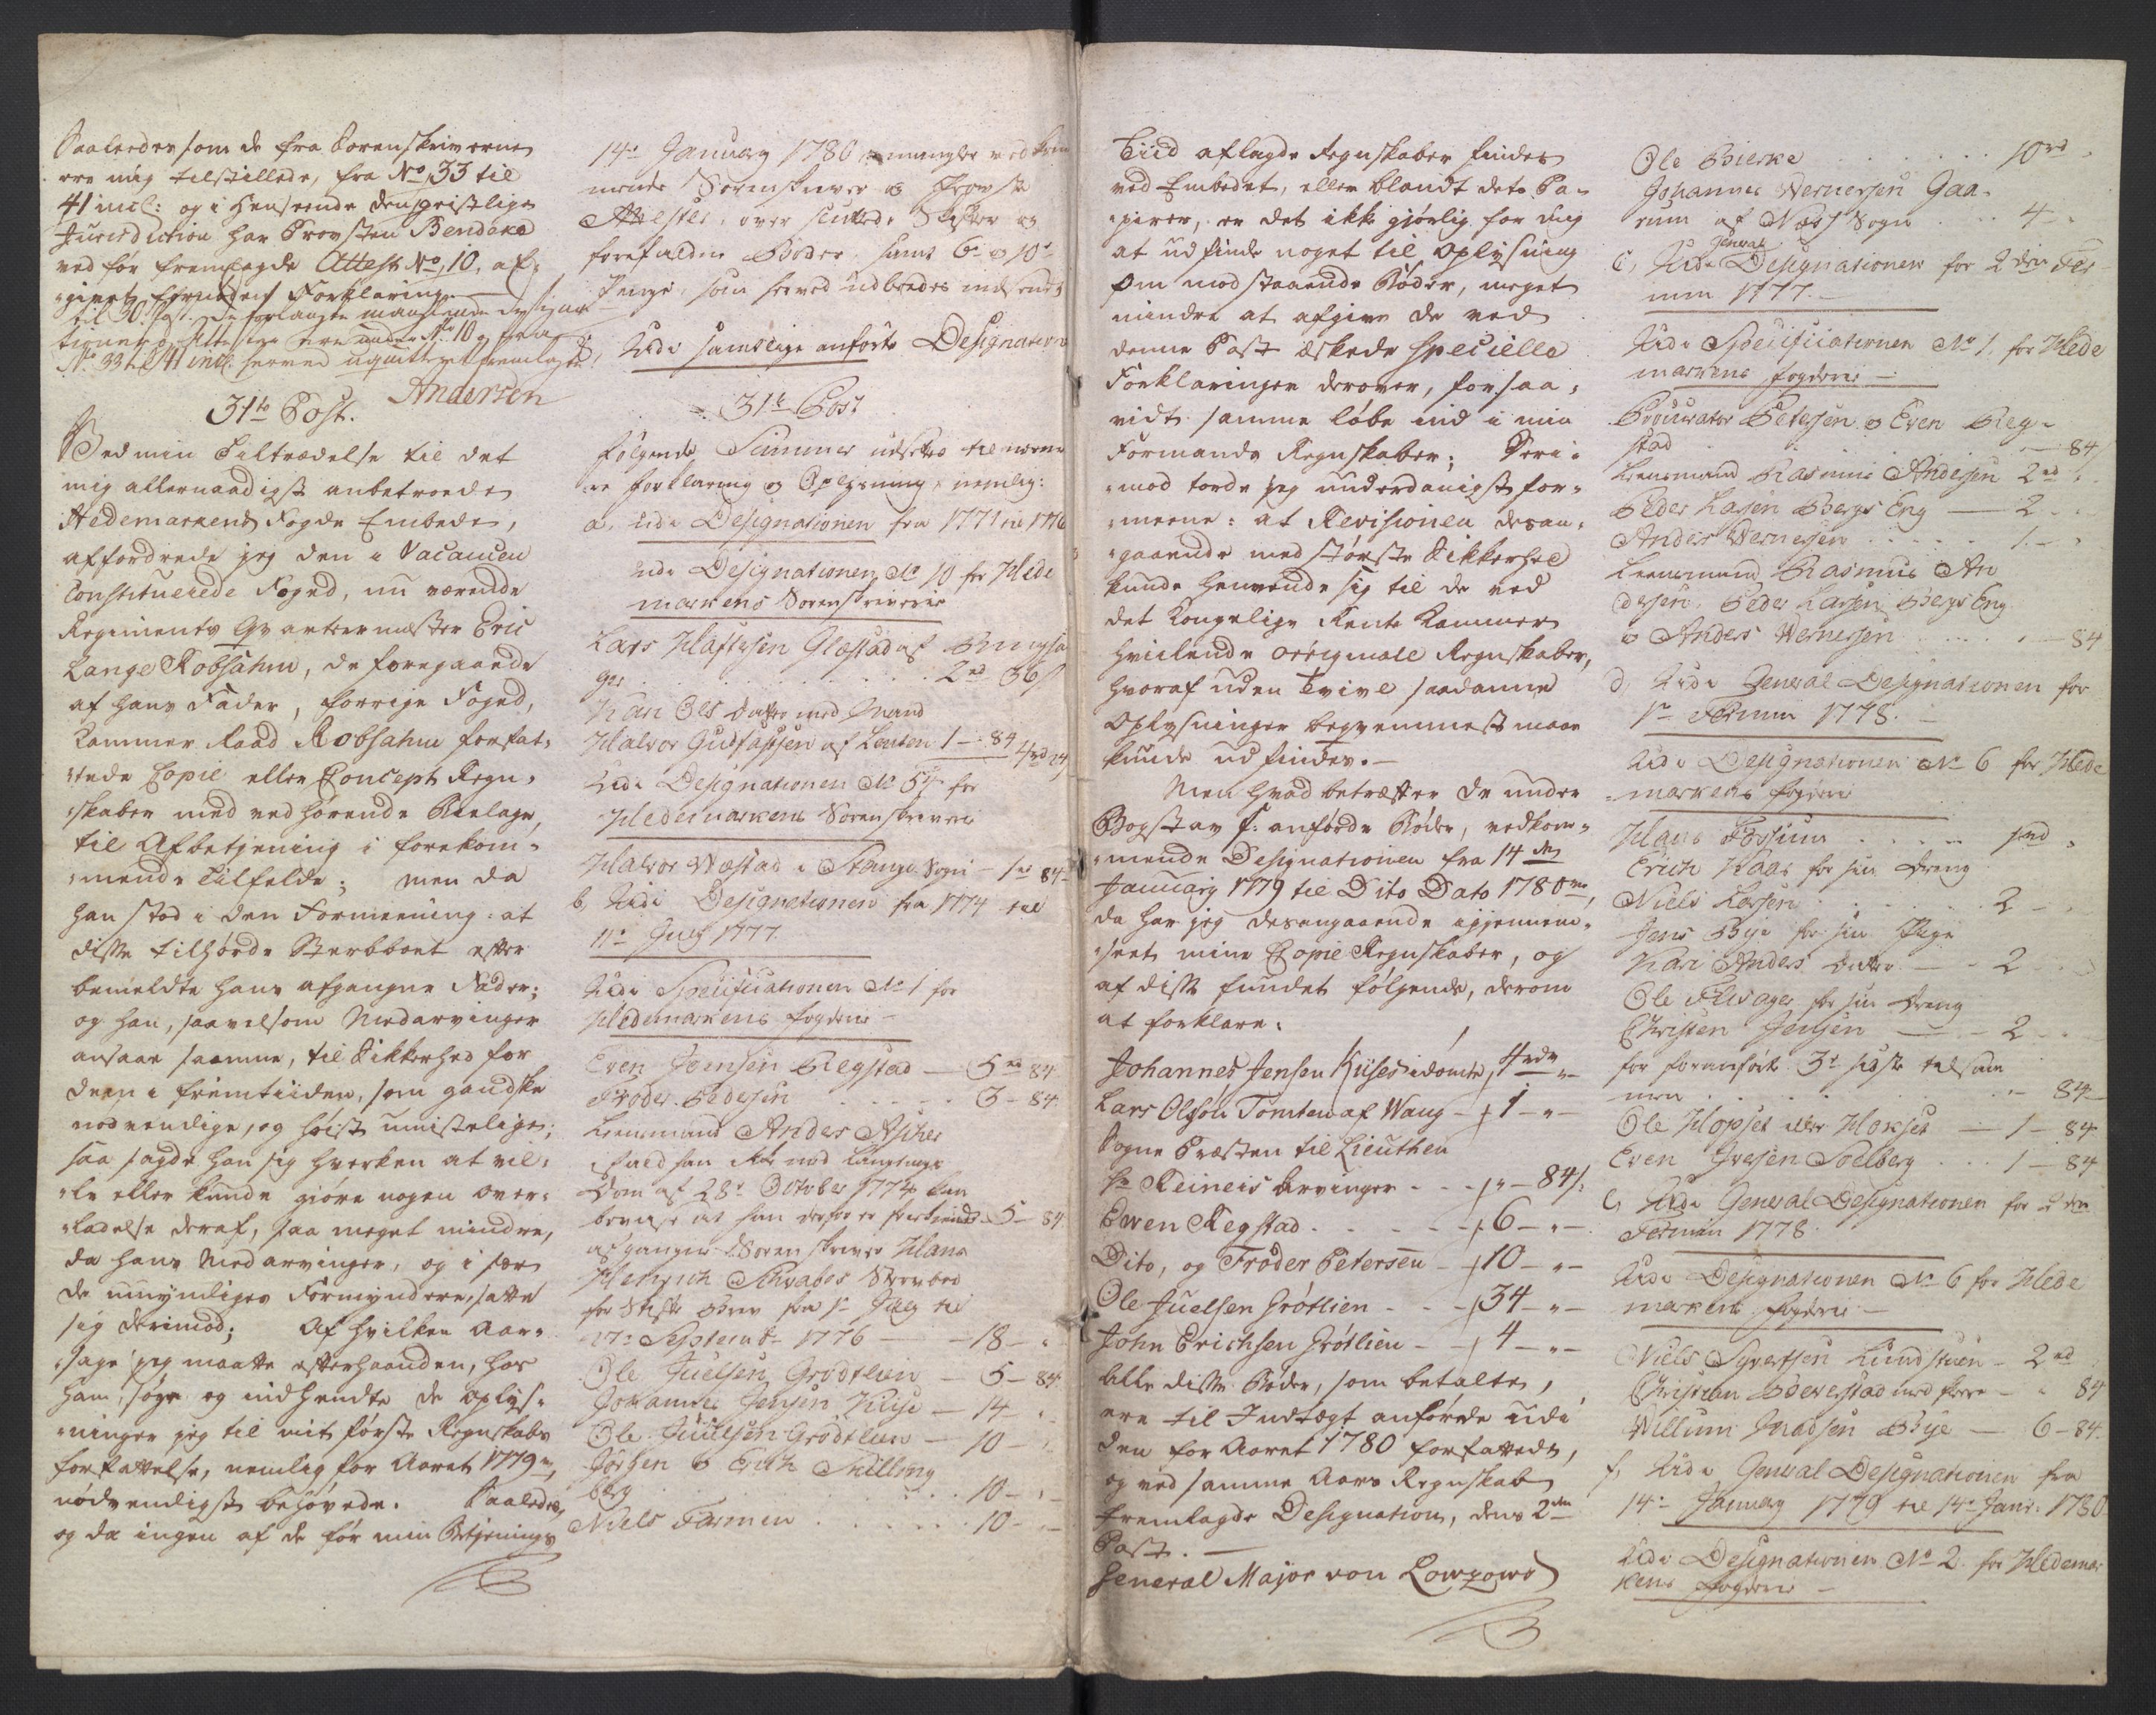 Saaledes som de fra Sorenskriverne
ere mig tilstillede, fra No 33 til
41 incl: og i Henseende den geistlige
Jurisdiction har Provsten Bendeke
ved før fremlagde Attest No 10, af-
givet fornøden Forklaring.
til 30 Post. De forlangte manglende Designa-
tioner og Attester ere under No 10 og fra
No 33 til 41 incl. herved
Andersen
31te Post.
Ved min Tiltrædelse til det
mig allernaadigst anbetroede
Hedemarkens Fogde Embede,
affordrede jeg den i Vacancen
Constituerede Foged, nu værende
Regiments Qvarteermester Eric
Lange Robsahm, de foregaaende
af hans Fader, forrige Foged,
Kammer Raad Robsahm forfat-
tede Copie eller Concept Regn-
skaber med vedhørende Bielage,
til Afbetjening i forekom-
mende Tilfelde; men da
han stod i den Formeening: at
disse tilhørde Sterbboet efter
bemeldte hans afgangne Fader;
og han, saavelsom Medarvinger
ansaae samme, til Sikkerhed for
dem i fremtiiden, som gandske
nødvendige, og høist umistelige;
saa sagde han sig hverken at vil-
le eller kunde gjøre nogen over-
ladelse deraf, saa meget mindre,
da hans Medarvinger, og i sær
de umyndiges Formyndere, satte
sig derimod; Af hvilken Aar-
sage jeg maatte efterhaanden, hos
ham, søge og indhendte de oplys-
ninger jeg til mit første Regnskabs
forfattelse, nemlig for Aaret 1779,
nødvendigst behøvede. Saaledes,
og da ingen af de før min Betjenings
14de January 1780 mangler vedkom
mende Sorenskriver og Provste
Attester, over sluttede Skifter og
forefaldne Bøder, samt 6te og 10de
Penge, som herved udbeedes indsendt
Udi samtlige anførte Designation
31te Post
Følgende Summer udsettes til nærme
re forklaring og Oplysning, nemlig:
a, udi Designationen fra 1771 til 1776
udi Designationen No 10 for Hede
markens Sorenskriverie
Lars Haftersen Glæstad af Ringsa
ger . . . 2rd 36
Kari Ols datter med Mand
Halvor Gulfassen af Leuten 1 - 84 4rd 24
Udi Designationen No 54 for
Hedemarkens Sorenskriverie
Halvor Wæstad i Stange Sogn - 1rd 84
b, Udi Designationen fra 1774 til
11te July 1777.
Udi Specificationen No 1 for
Hedemarkens Fogderie
Even Jemsen Regstad - 5rd 84
Troder Pedersen . . . 3 - 84
Leensmand Anders Ascher
ifald han ikke ved Laugtings
Dom af 28de October 1774 kan
bevise at han derfor er frikiendt 5 - 84
afgangne Sorenskriver Hans
Henrich Schrabes Sterboe
for Skifte Brev fra 1te July til
17de September 1776 - 18 -
Ole Juelsen Grødtlien - 5 - 84
Johannes Jensen Kiise - 14 -
Ole Juulsen Grødtlien - 10 -
Jørgen og Erich Skilling
berg . . . 10 -
Niels Farmen . . . 10 -
Tiid aflagde Regnskaber findes
ved Embedet, eller blandt dets Pa-
pirer, er det ikke gjørlig for mig
at udfinde noget til oplysning
om modstaaende Bøder, meget
mindre at afgive de ved
denne Post æskede specielle
Forklaringer derover, forsaa-
vidt samme løbe ind i min
Formands Regnskaber; Deri-
mod torde jeg underdanigst for-
meene: at Revisionen desan-
gaaende med største Sikkerhed
kunde henvende sig til de ved
det Kongelige Rente Kammer
hvilende originale Regnskaber,
hvoraf uden Tvivl saadanne
Oplysninger beqvemmest maae
kunde udfindes.
Men hvad betræffer de under
Bogstav f: anførde Bøder, vedkom-
mende Designationen fra 14de
January 1779 til Dito Dato 1780,
da har jeg desangaaende igjennem-
seet mine Copie Regnskaber, og
af disse fundet følgende, derom
at forklare.
Johannes Jensen Kiises idømte, 4rd -
Lars Olsøn Tomten af Wang - 1 - -
Sogne Præsten til Lieuthen
Hr Reineis Arvinger - - - 84s
Ewen Regstad - - - 6 - -
Dito, og Trøder Petersen - 10 - -
Ole Juelsen Grøtlien - - 34 - -
John Erichsen Grøtlien - - 4 - -
Alle disse Bøder, som betalte,
ere til Indtægt anførde udi
den for Aaret 1780 forfattede,
og ved samme Aars Regnskab
fremlagde Designation, dens 2den
Post.
General Major von Lowzows
Ole Bierke . . . 10rd
Johannes Wernersen Gaa-
rum af Næss Sogn . . 4 -
c, Udi General Designationen for 2den Ter
min 1777.
Udi Specificationen No 1, for Hede
markens fogderie
Procurator Petersen og Even Reg-
stad . . . 84
Leensmand Rasmus Andersen 2rd
Peder Larsen Bergs Eng - 2 -
Anders Wernersen . . . 1 -
Leensmand Rasmus An
dersen, Peder Larsen Bergs Eng
og Anders Wernersen . . . 84
d, Udi General Designationen for
1te Termin 1778.
Udi Designationen No 6 for Hede
markens fogderie
Hans Fossum . . . 1rd
Erich Kaas for sin Dreng
Niels Larsen . . . 2 -
Jens Bye for sin Pige
Kari Anders datter - 2
Ole Filsager for sin Dreng
Christen Jensen - 2
for foranførte 3de sidste tilsam
men . . . 84
Ole Hopset eller Hoxset - 1 - 84
Even Iversen Soelberg . . 1 - 84
e, Udi General Designationen for 2den
Termin 1778.
Udi Designationen No 6 for Hede
markens fogderie
Niels Syvertsen Lundstuen - 2rd
Christian Beverstad med - 84
Willum Madsen Bye - 6 - 84
f, Udi General Designationen fra
14de January 1779 til 14de Janr: 1780
Udi Designationen No 2 for Hedemar
kens fogderie